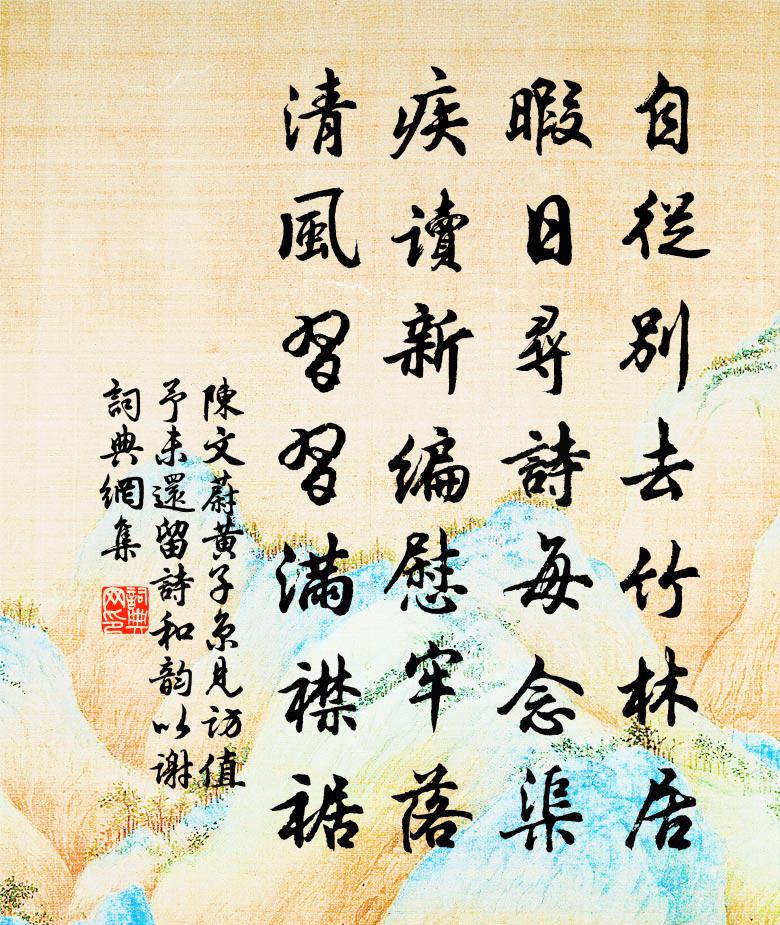 自從別去竹林居
暇日尋詩每念渠
疾讀新編慰牢落
清風習習滿襟裾
陳文蔚黃子京見訪值
予未還留詩和韵以謝
詞典網集
詞典網印